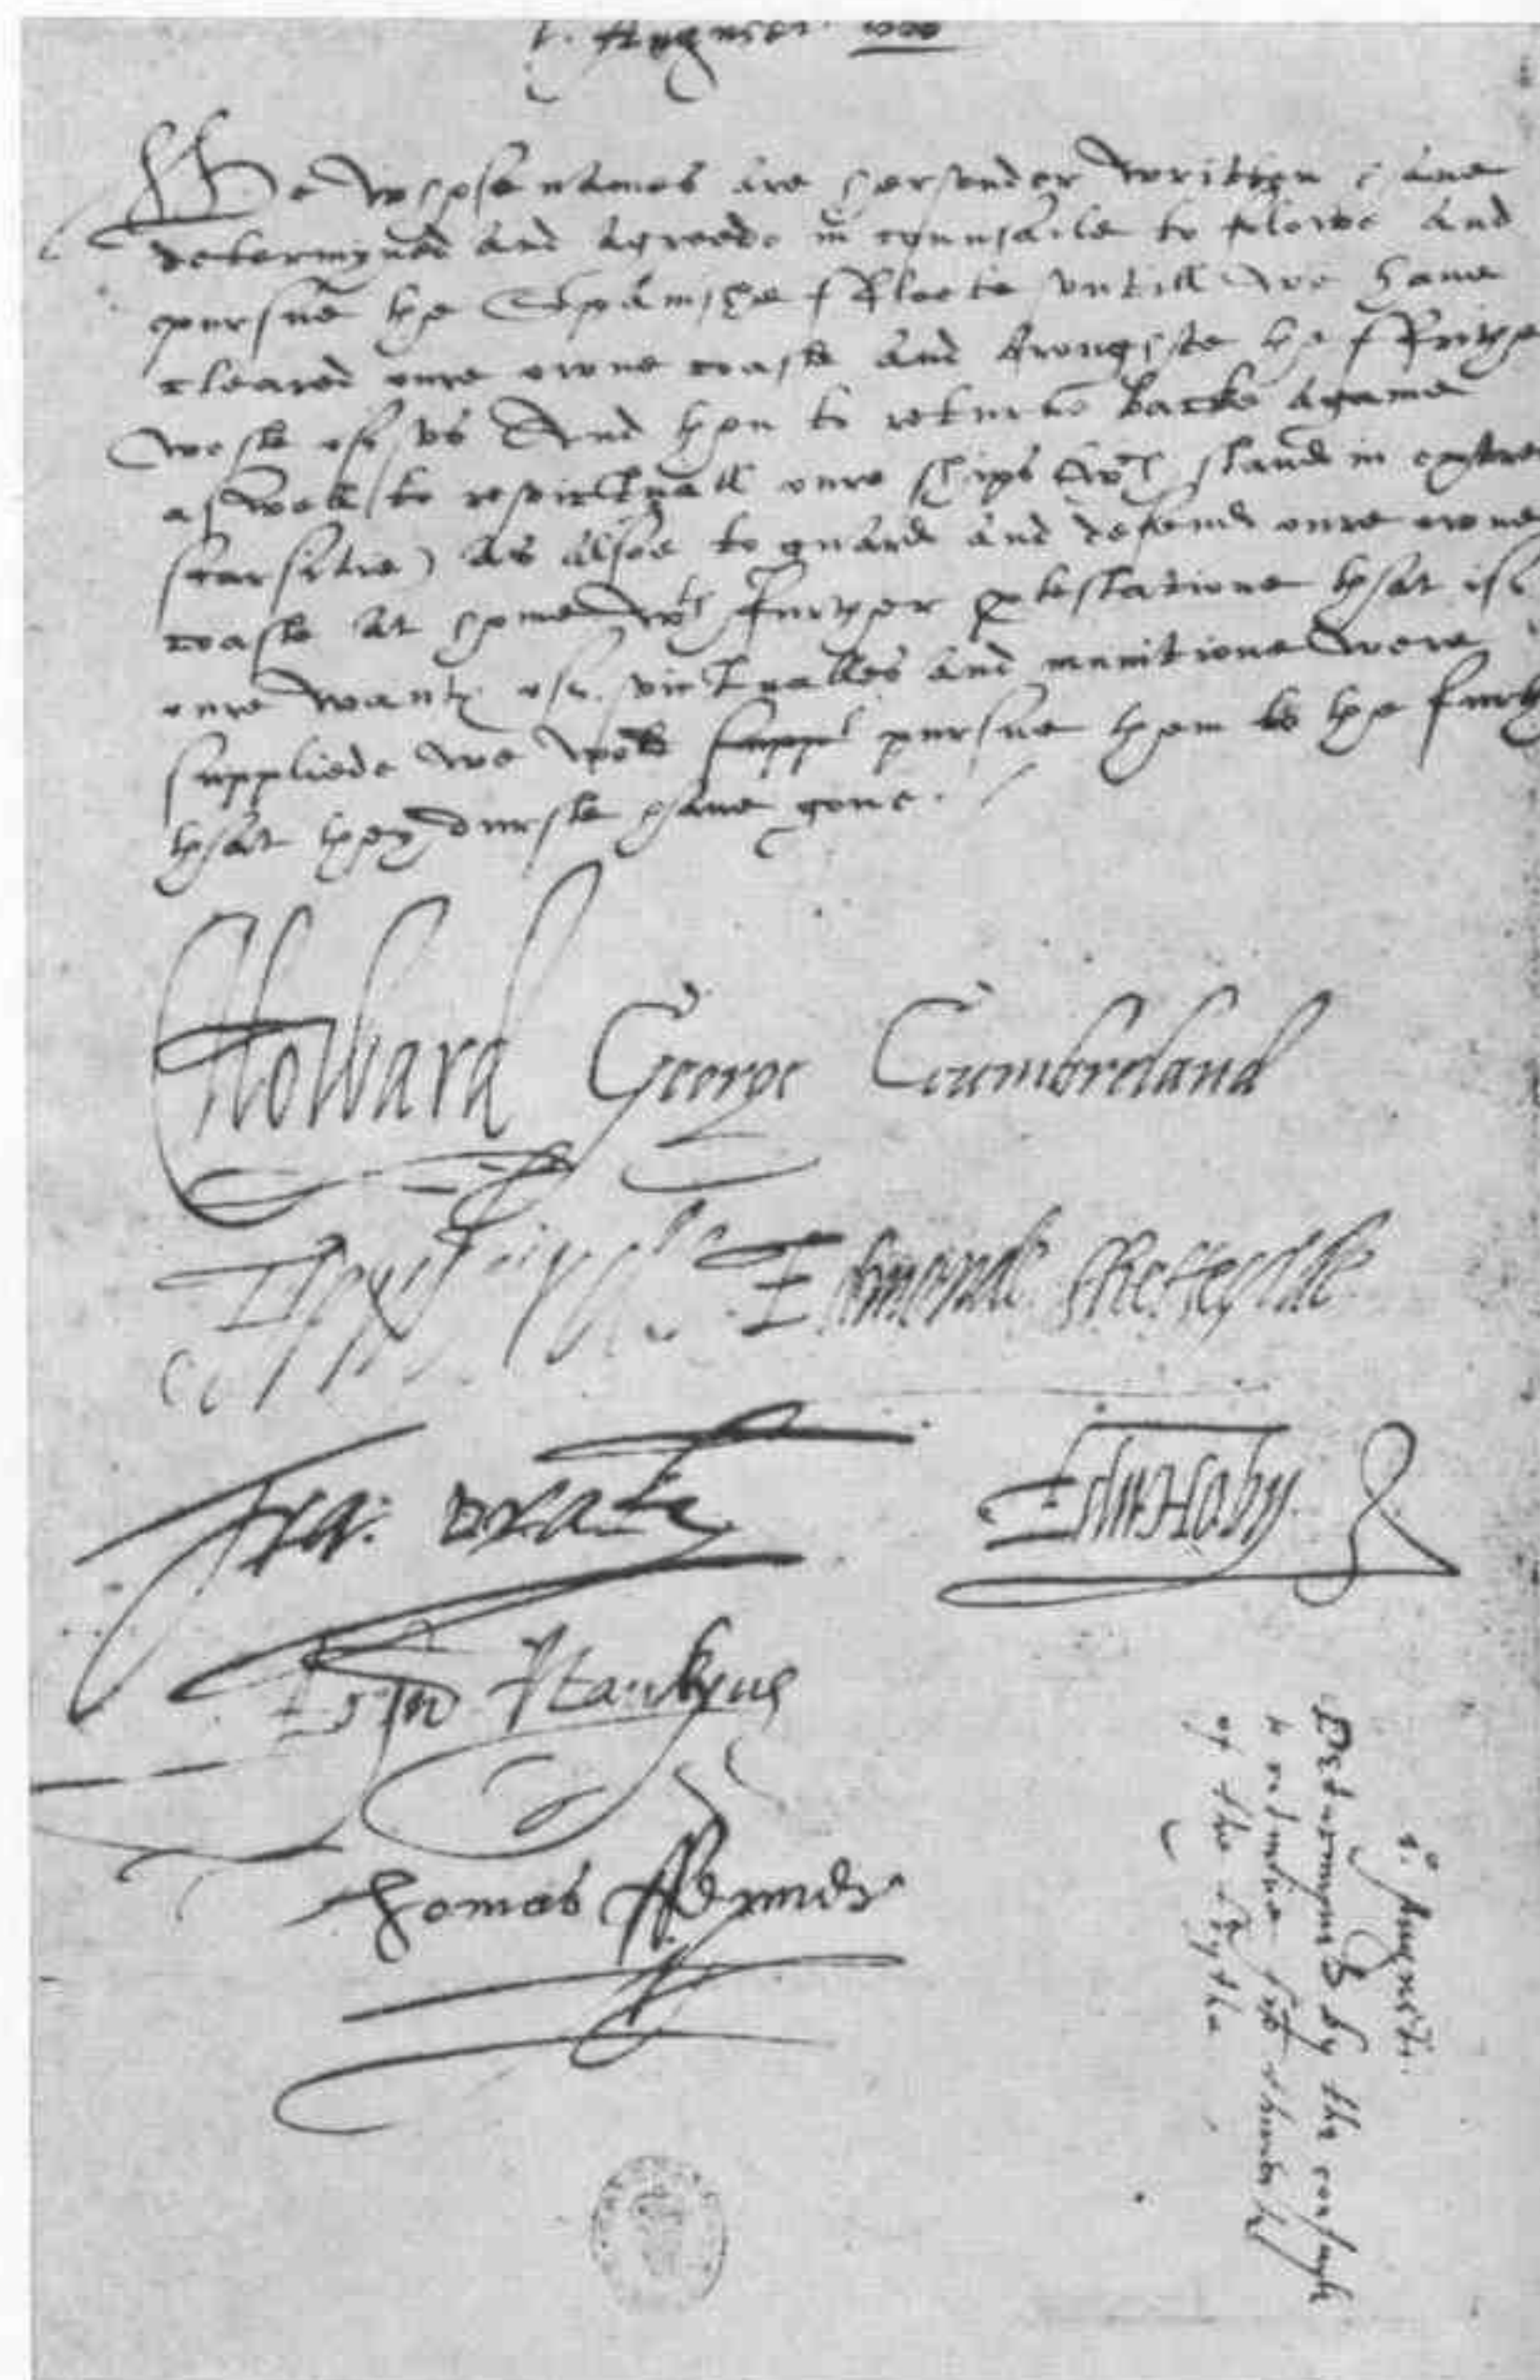 1. Auguste. 1588
We whose names are herevnder written have
determyned and agreede in counsaile to folowe and
pursue the Spanishe ffleete vntill we have
cleared oure owne coaste and broughte the ffrithe
weste of vs And then to returne backe againe
aswell to revictuall oure ships wch stande in extre
scarsitie) as alsoe to guarde and defende oure owne
coaste at home wth further ptestatione that if
oure wantes of victualles and munitione were
suppliede we wold pursue them to the furth
that they durste have gone.
CHoward George Coumbreland
T Howard Edmonde Sheffeylde
Fra: Drake Edw: Hoby
John Hawkyns
Thomas ffenner
1o. Augusti.
Determyned by the counsayle
of the